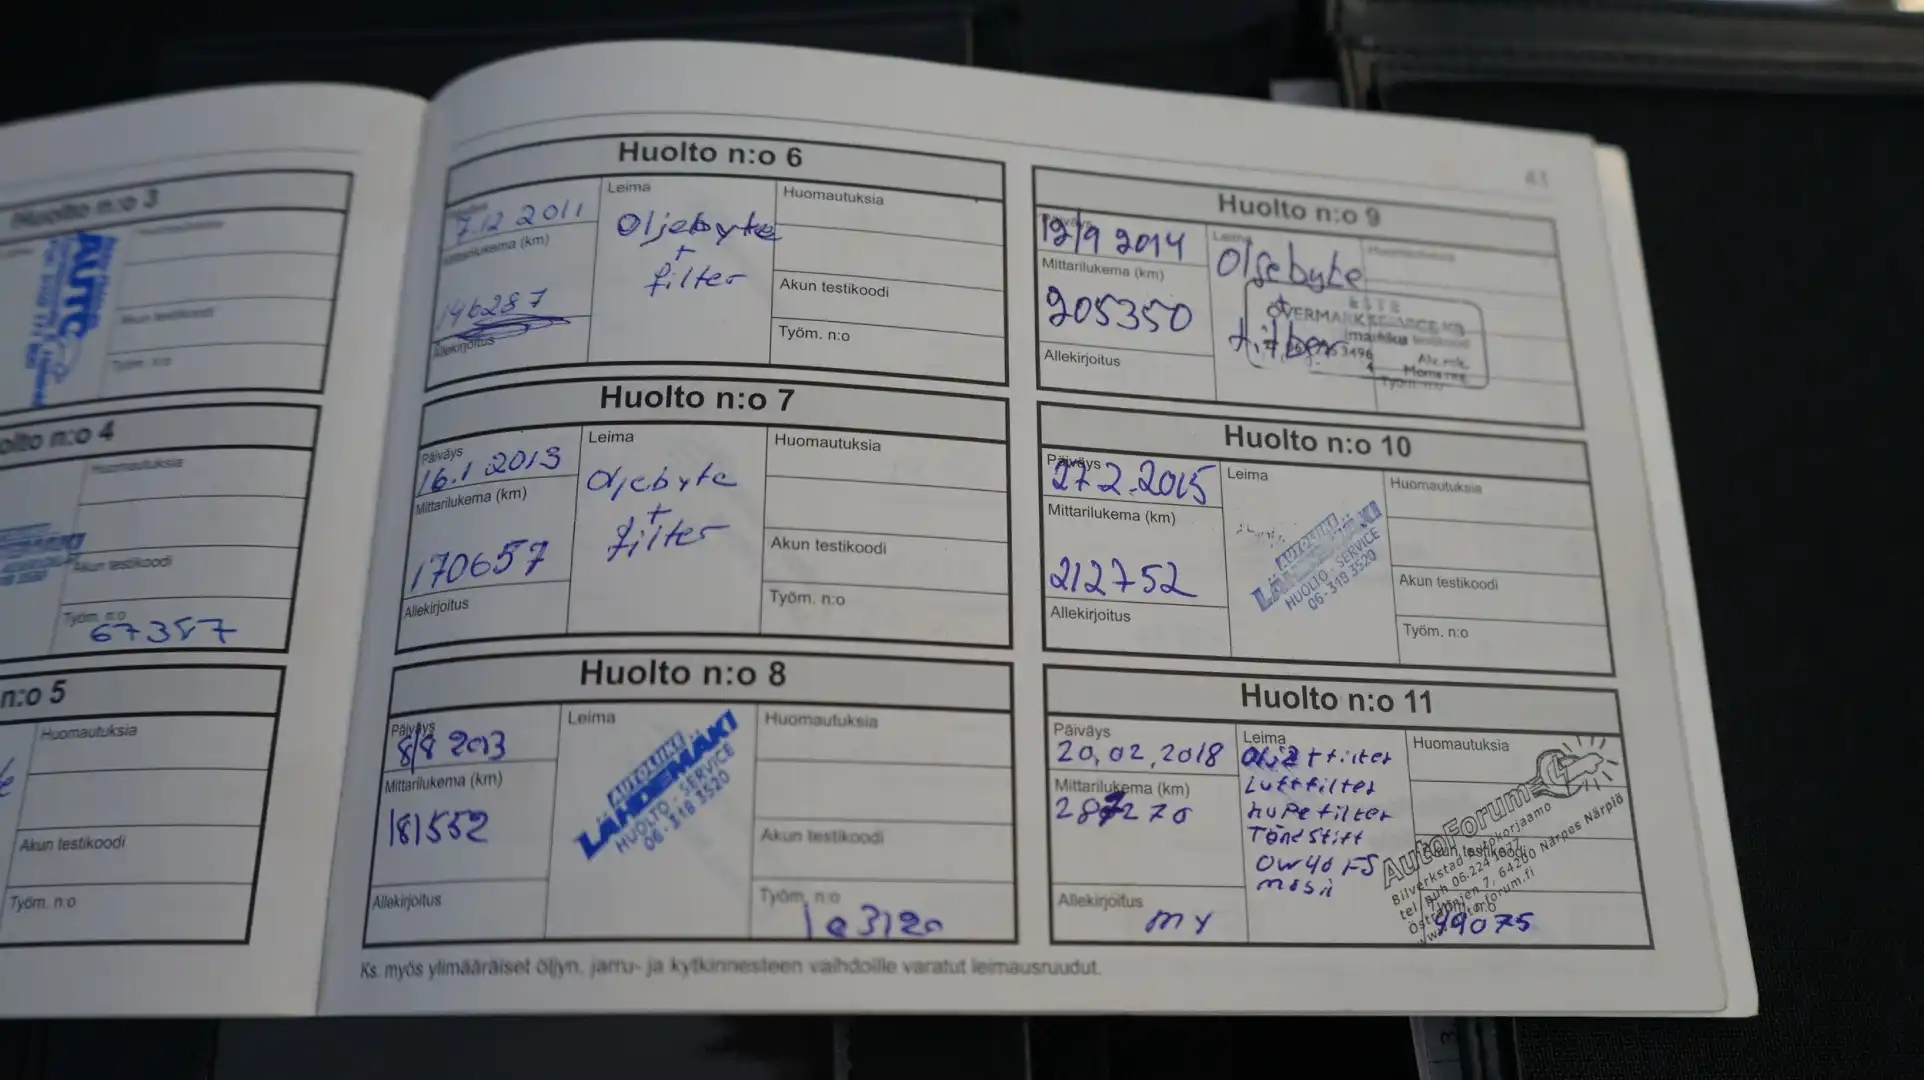 Huolto n:o 3
AUTO
Akun testikoodi
Työm. n:o
olto n:o 4
Huomautuksia
Akun testikoodi
Työm. n:o
67357
n:o 5
Huomautuksia
Akun testikoodi
Työm. n:o
43
Huolto n:o 6
7.12 2011
Mittarilukema (km)
146287
Allekirjoitus
Leima
Oljebyte
+
filter
Huomautuksia
Akun testikoodi
Työm. n:o
Huolto n:o 7
Päiväys
16.1 2013
Mittarilukema (km)
170657
Allekirjoitus
Leima
Oljebyte
+
filter
Huomautuksia
Akun testikoodi
Työm. n:o
Huolto n:o 8
Päiväys
8/8 2013
Mittarilukema (km)
181552
Allekirjoitus
Leima
AUTOLIIKE
LÄHDEMÄKI
HUOLTO - SERVICE
06-318 3520
Huomautuksia
Akun testikoodi
Työm. n:o
Huolto n:o 9
Päiväys
12/9 2014
Mittarilukema (km)
205350
Allekirjoitus
Leima
Oljebyte
+
ÖVERMARK SERVICE KB
Moms reg
Työm. n:o
Huolto n:o 10
Päiväys
27.2.2015
Mittarilukema (km)
212752
Allekirjoitus
Leima
AUTOLIIKE
LÄHDEMÄKI
HUOLTO - SERVICE
06-318 3520
Huomautuksia
Akun testikoodi
Työm. n:o
Huolto n:o 11
Päiväys
20.02.2018
Mittarilukema (km)
Allekirjoitus
MY
Leima
Olja + filter
Luftfilter
hupefilter
Tändstift
0W40 FS
Huomautuksia
AutoForum
Bilverkstad Autokorjaamo
tel puh 06.224 1677
64200 Närpes Närpiö
Akun testikoodi
Työm. n:o
49075
Ks. myös ylimääräiset öljyn, jarru- ja kytkinnesteen vaihdoille varatut leimausruudut.